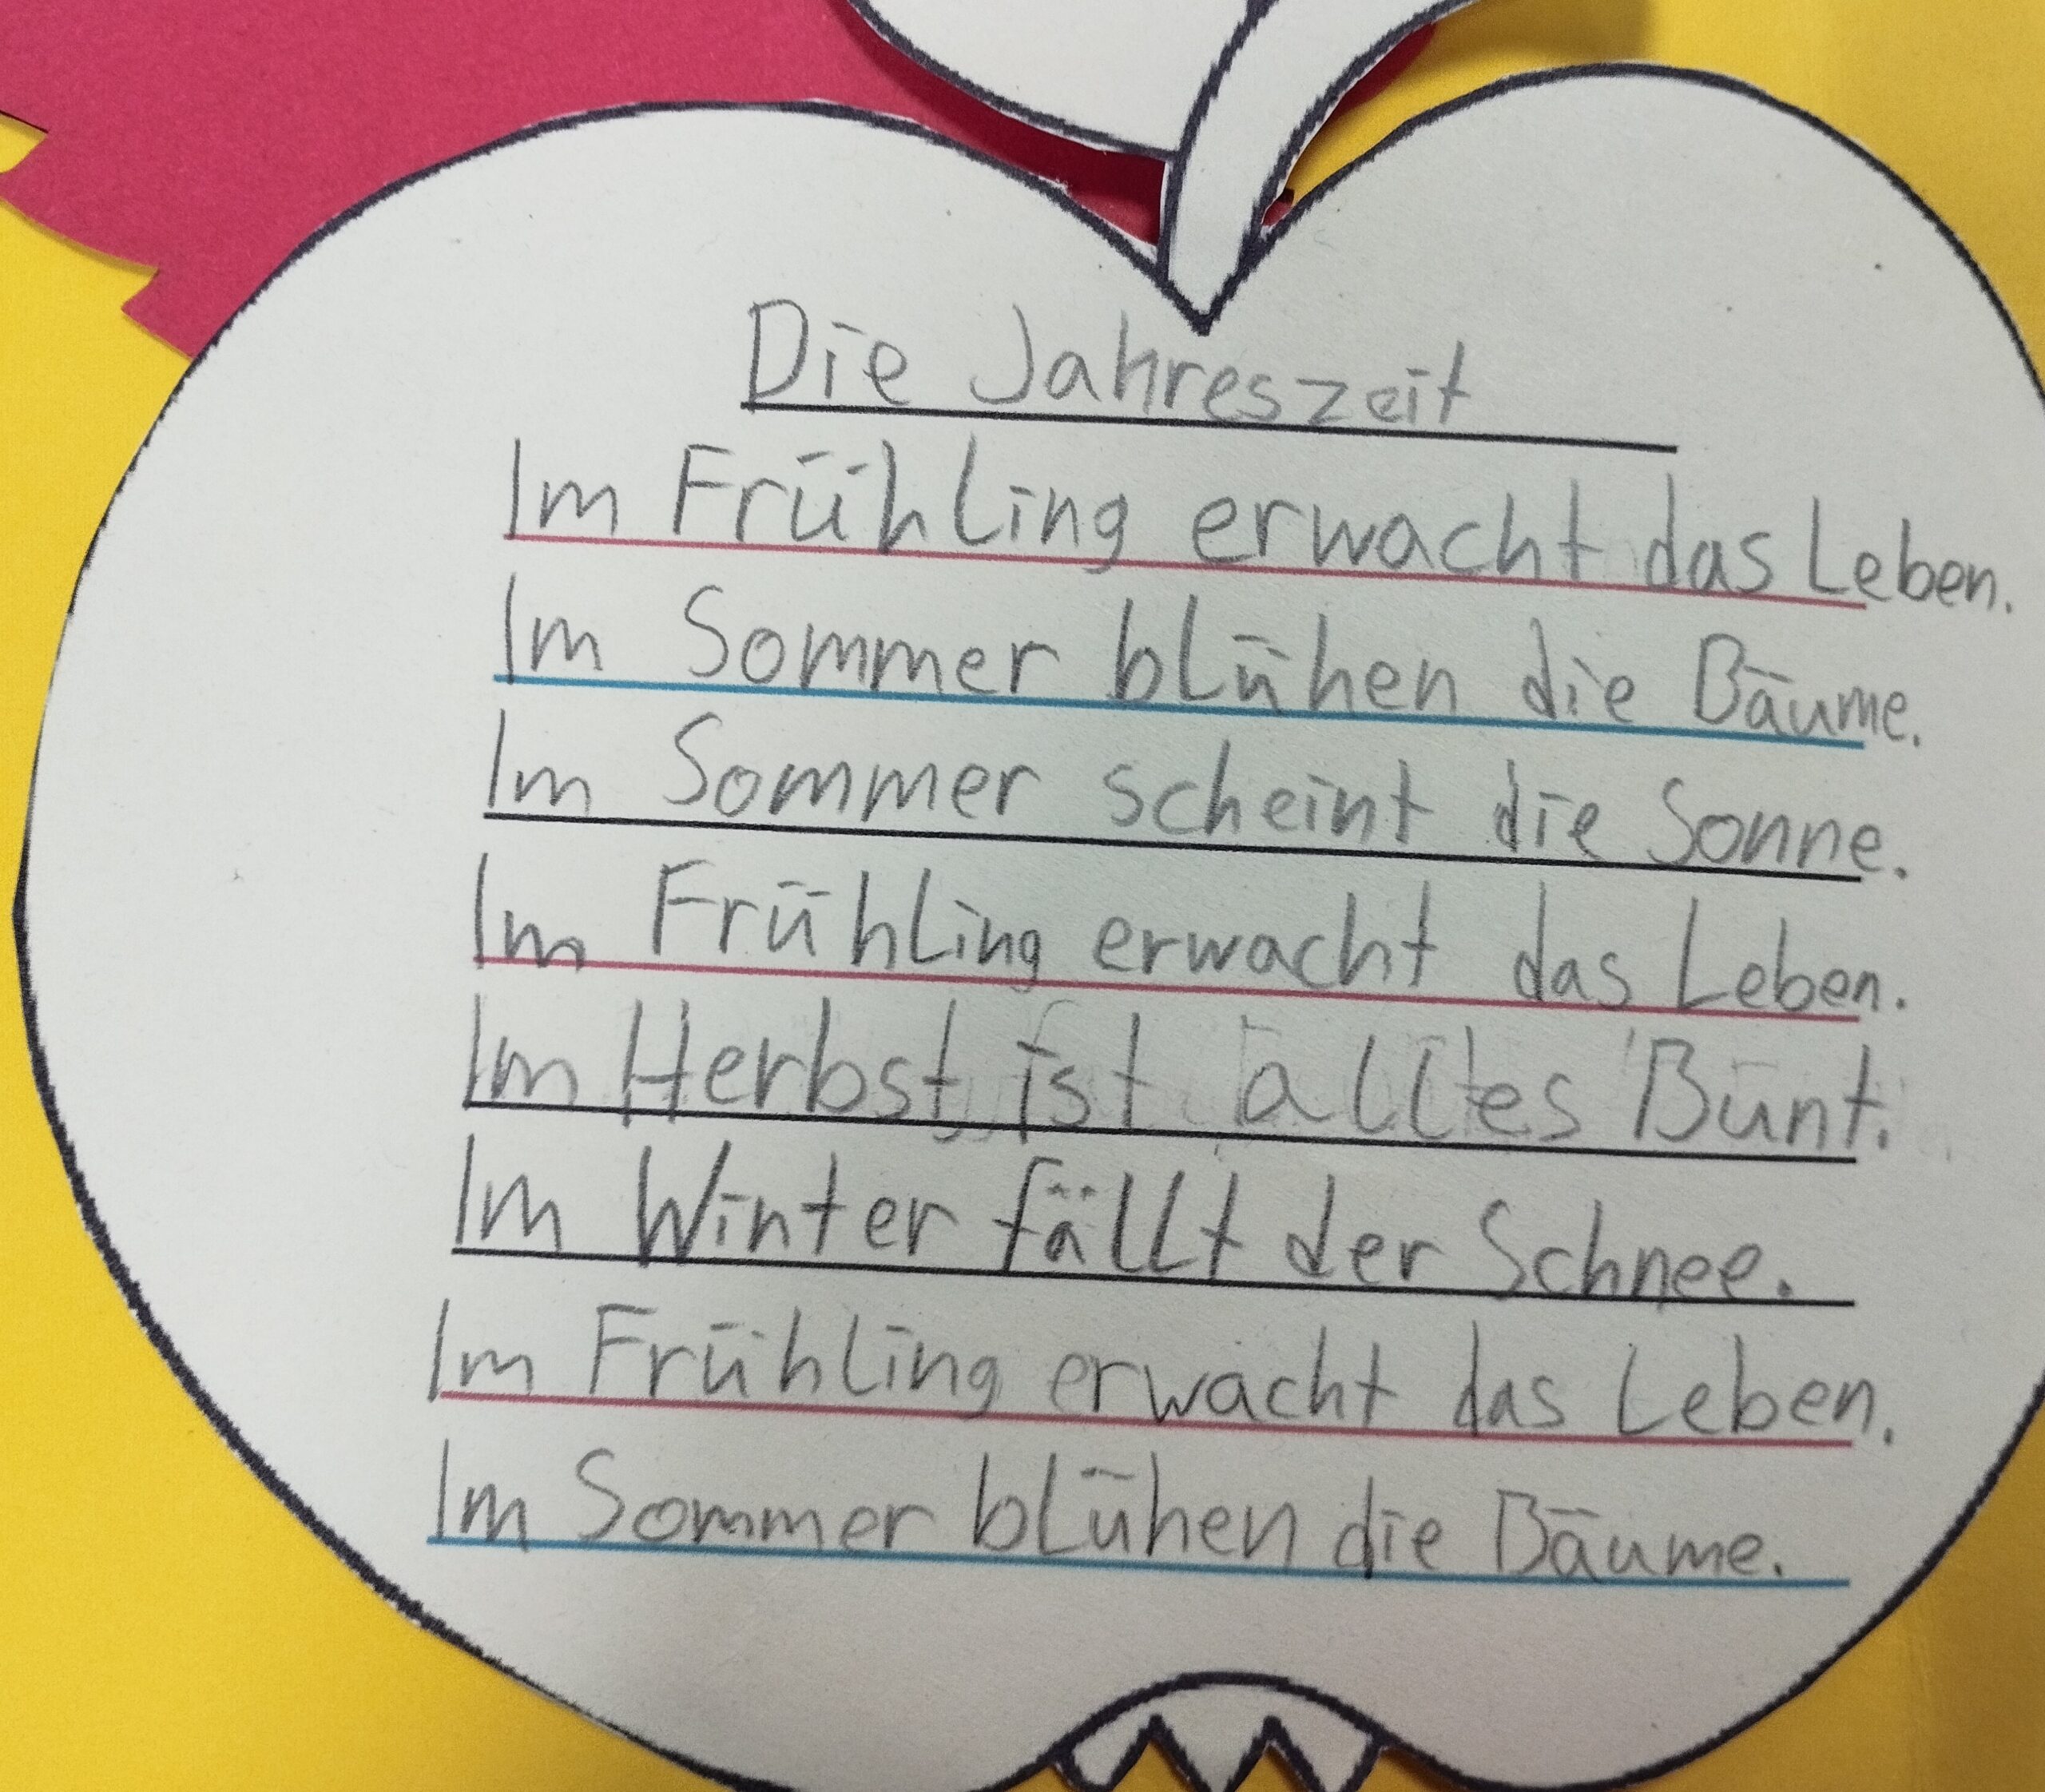 Die Jahreszeit
Im Frühling erwacht das Leben.
Im Sommer blühen die Bäume.
Im Sommer scheint die Sonne.
Im Frühling erwacht das Leben.
Im Herbst ist alltes Bunt.
Im Winter fällt der Schnee.
Im Frühling erwacht das Leben.
Im Sommer blühen die Bäume.